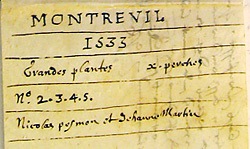 MONTREVIL
1533
Grandes plantes x. perches
Nº 2.3.4.5.
Nicolas pesmon et Jehanne Martin